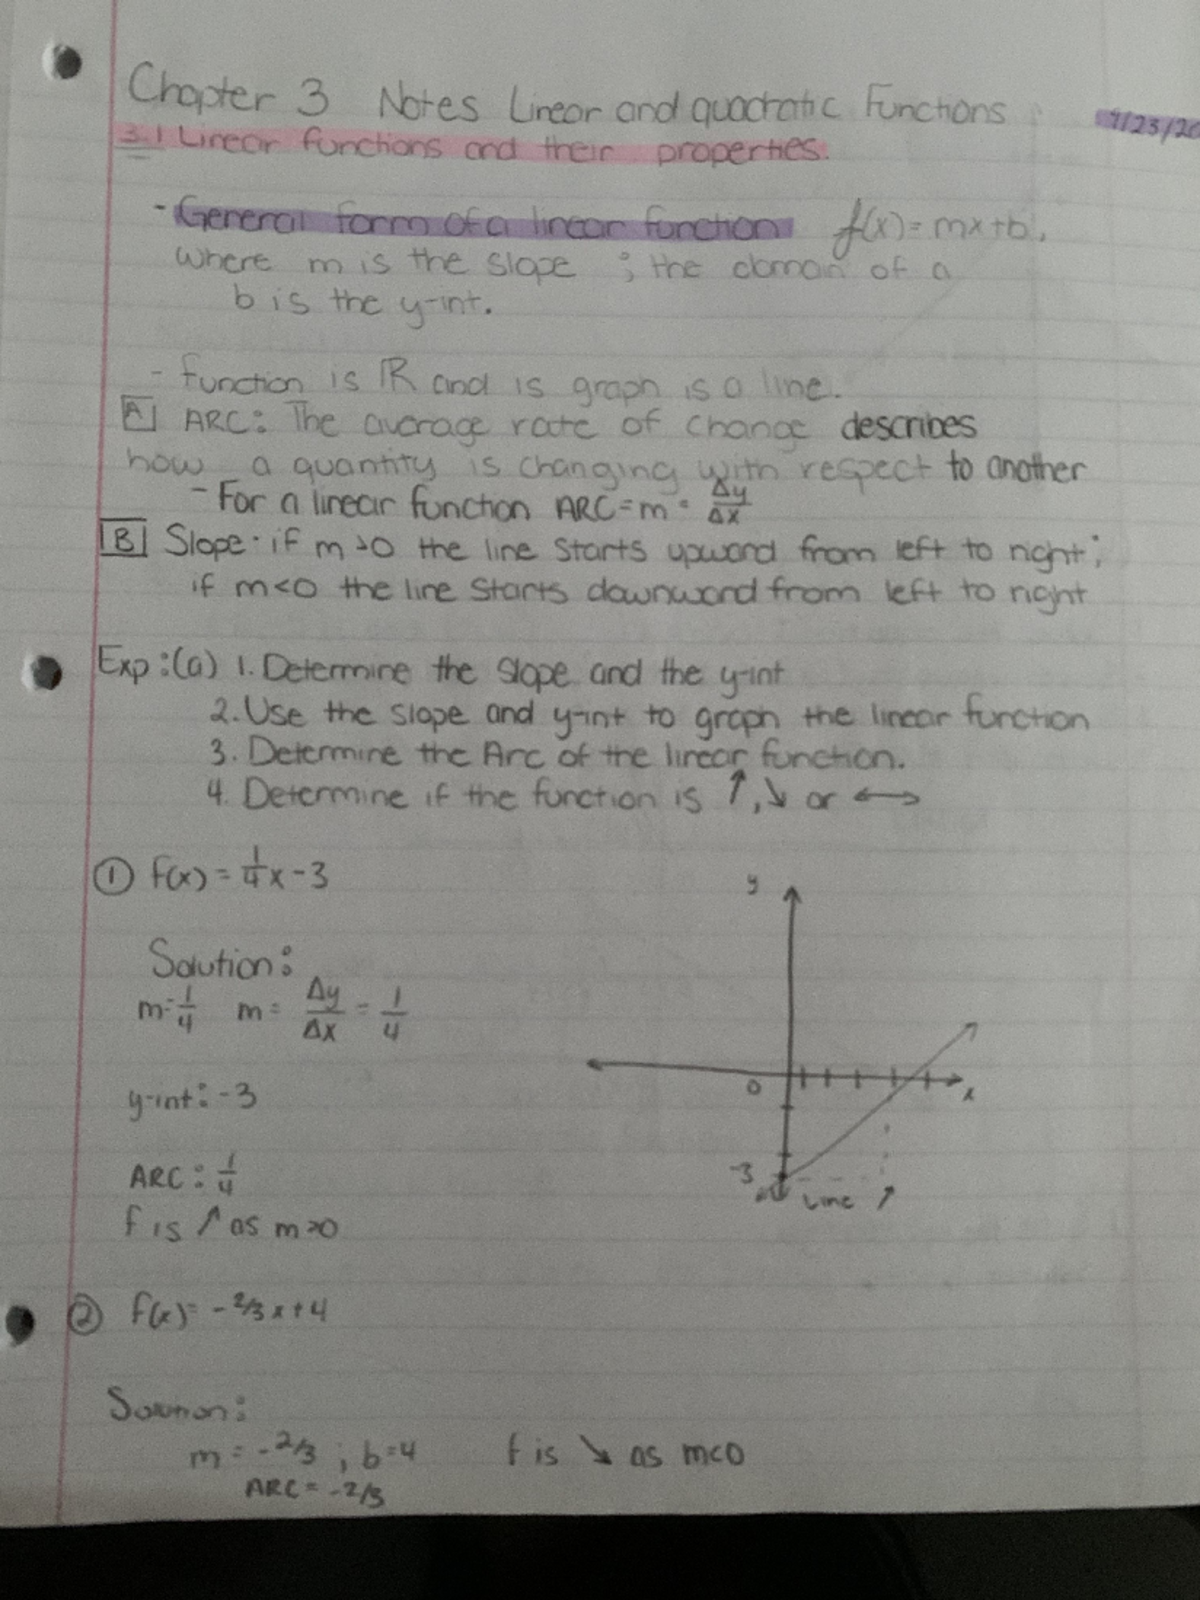 Chapter 3 Notes Linear and quadratic Functions
7/23/20
3.1 Linear functions and their properties.
- General form of a linear function f(x) = mx+b,
where m is the slope ; the domain of a
b is the y-int.
- function is ℝ and is graph is a line.
A ARC: The average rate of change describes
how a quantity is changing with respect to another
- For a linear function ARC = m = Δy/Δx
B Slope: if m>0 the line Starts upward from left to right;
if m<0 the line Starts downward from left to right
Exp:(a) 1. Determine the Slope and the y-int
2. Use the slope and y-int to graph the linear function
3. Determine the Arc of the linear function.
4. Determine if the function is ↑, ↘ or ↔
① f(x) = 1/4x - 3
y
Solution:
m=1/4 m= Δy/Δx = 1/4
0
x
y-int: -3
-3
Line
ARC: 1/4
f is ↗ as m>0
② f(x)= -2/3 x + 4
Solution:
m = -2/3 ; b=4 f is ↘ as m<0
ARC = -2/3